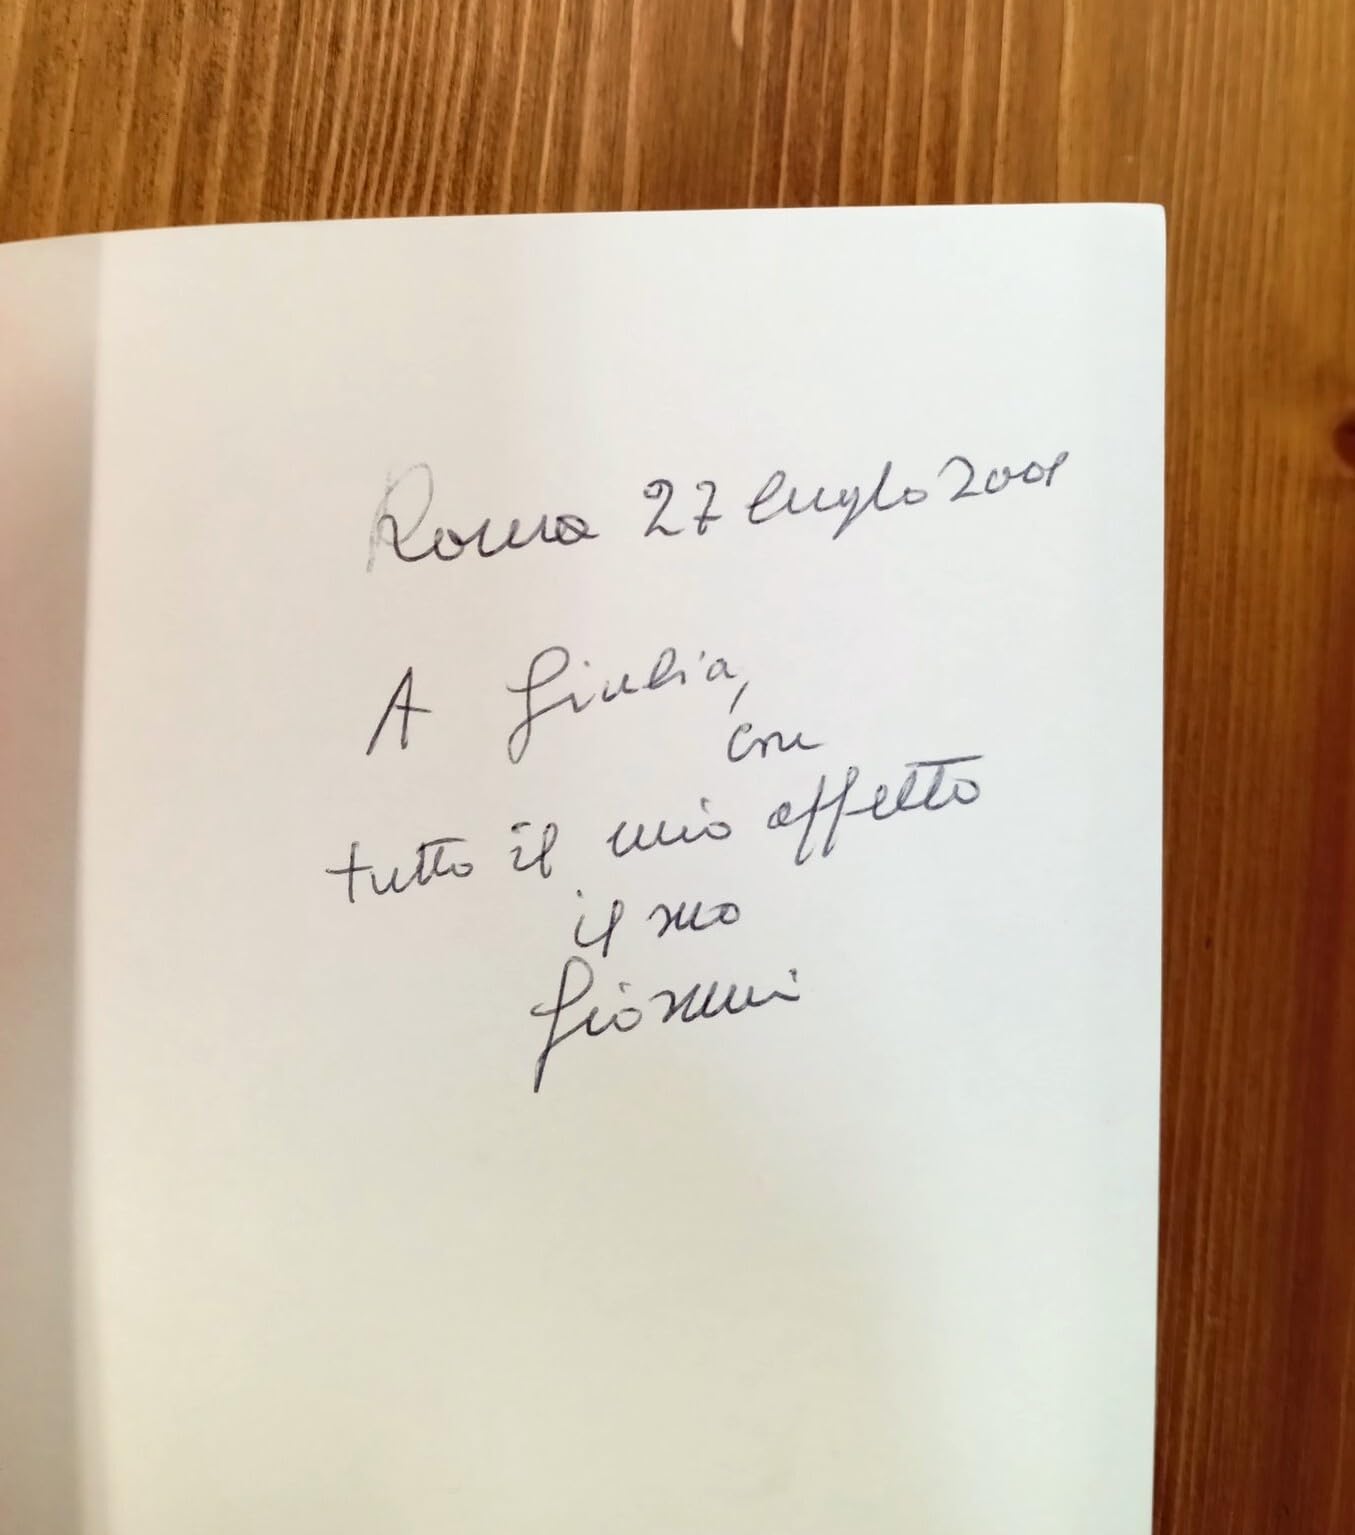 Roma 27 luglio 2001
A Giulia,
con
tutto il mio affetto
il suo